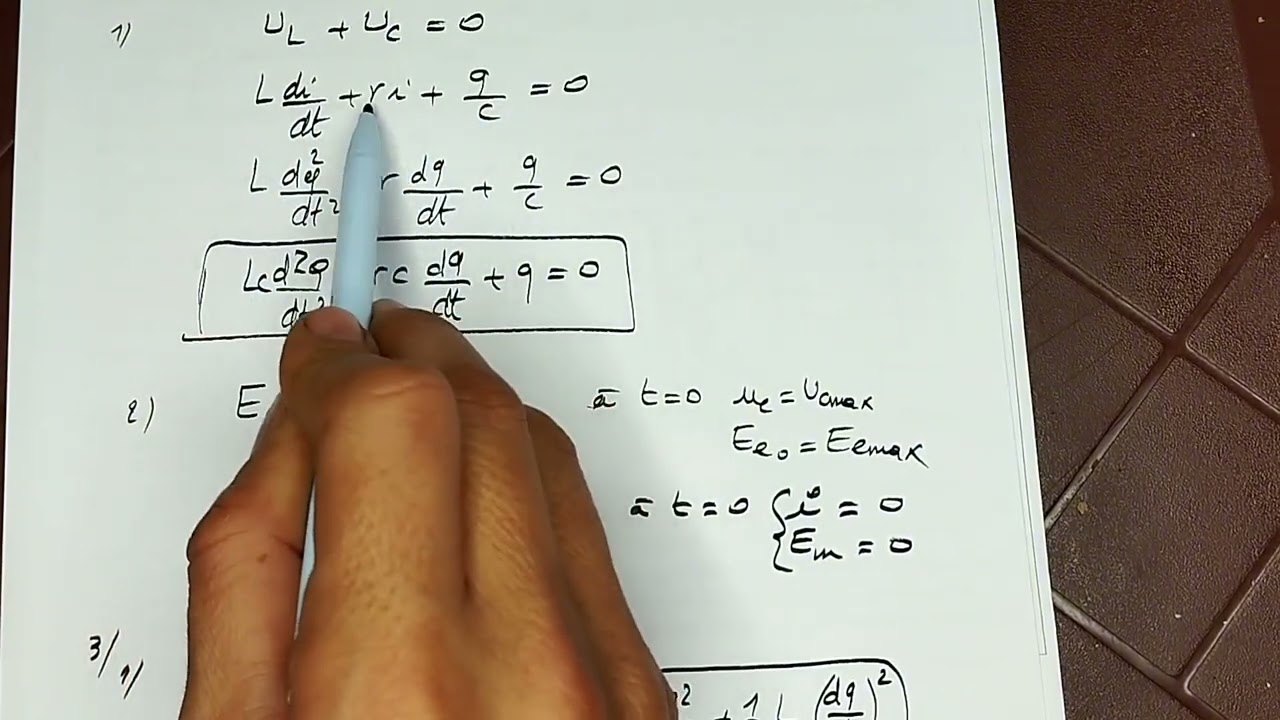 1) U_L + U_C = 0
L di/dt + ri + q/c = 0
L dq²/dt² r dq/dt + q/c = 0
Lc d²q/dt² rc dq/dt + q = 0
2) E
à t=0 u_c = Ucmax
Ee₀ = Eemax
à t=0 { i = 0
{ Em = 0
3/ 1/
² + 1 L (dq/)²